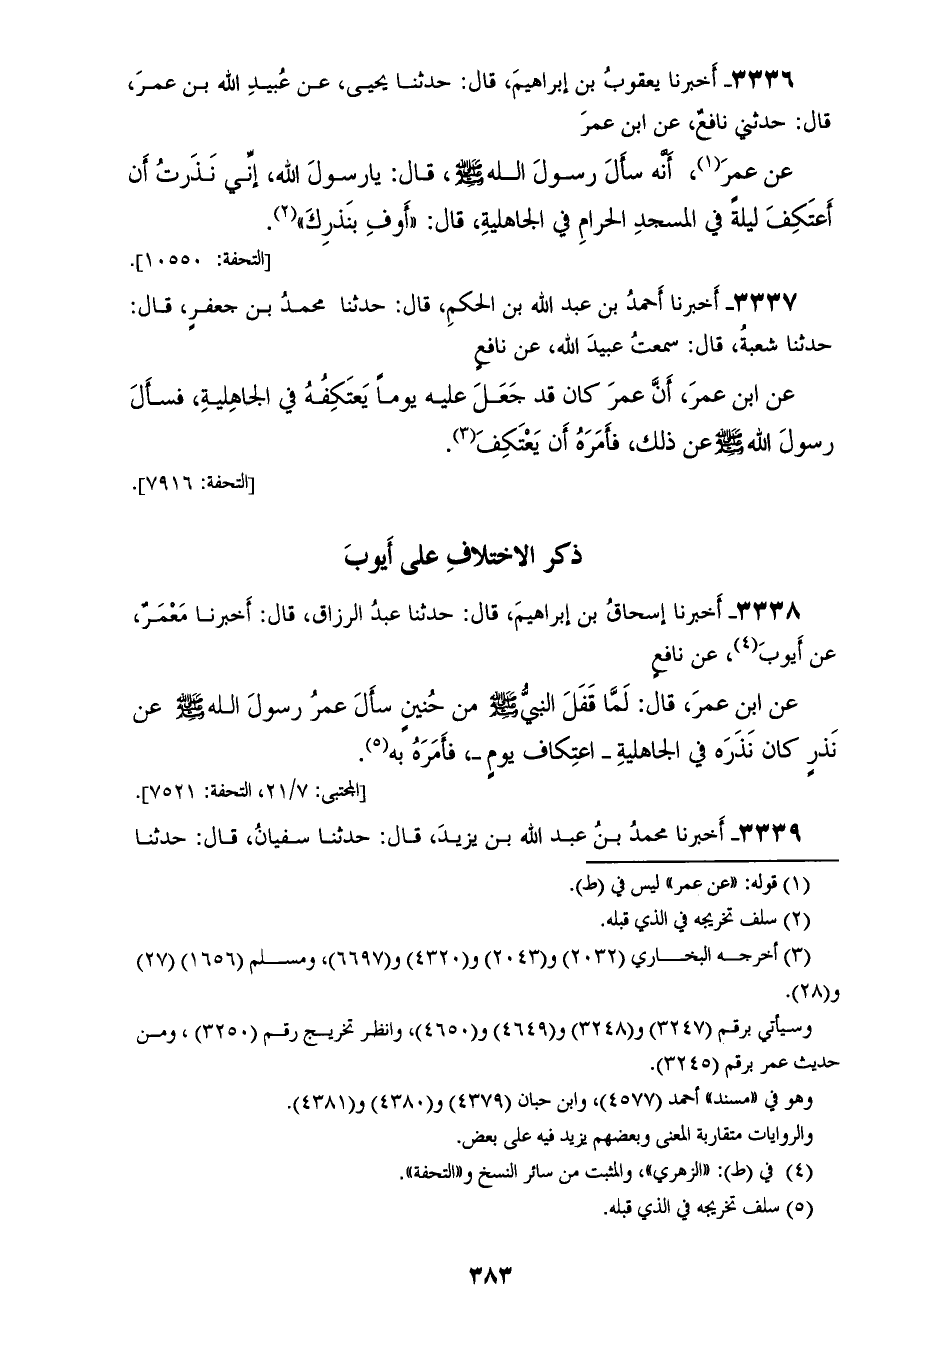 ٣٣٣٦ـ أَخبرنا يعقوبُ بن إبراهيمَ، قال: حدثنا يحيى، عن عُبيدِ الله بن عمرَ،
قال: حدثني نافعٌ، عن ابن عمرَ
عن عمرَ(١)، أَنَّه سأَلَ رسولَ الله ﷺ، قال: يارسولَ الله، إنِّي نَذَرتُ أَن
أَعتَكِفَ ليلةً في المسجدِ الحرامِ في الجاهليةِ، قال: «أَوفِ بنَذرِكَ»(٢).
[التحفة: ١٠٥٥٠].
٣٣٣٧ـ أَخبرنا أَحمدُ بن عبد الله بن الحكمِ، قال: حدثنا محمدُ بن جعفرٍ، قال:
حدثنا شعبةُ، قال: سمعتُ عبيدَ الله، عن نافعٍ
عن ابن عمرَ، أَنَّ عمرَ كان قد جَعَلَ عليه يوماً يَعتَكِفُهُ في الجاهِليةِ، فسأَلَ
رسولَ الله ﷺ عن ذلك، فأَمَرَهُ أَن يَعْتَكِفَ(٣).
[التحفة: ٧٩١٦].
ذكر الاختلافِ على أَيوبَ
٣٣٣٨ـ أَخبرنا إسحاقُ بن إبراهيمَ، قال: حدثنا عبدُ الرزاق، قال: أَخبرنا مَعْمَرٌ،
عن أَيوبَ(٤)، عن نافعٍ
عن ابن عمرَ، قال: لَمَّا قَفَلَ النبيُّ ﷺ من حُنينٍ سأَلَ عمرُ رسولَ الله ﷺ عن
نَذرٍ كان نَذَرَه في الجاهليةِ ـ اعتِكاف يومٍ ـ، فأَمَرَهُ به(٥).
[المجتبى: ٢١/٧، التحفة: ٧٥٢١].
٣٣٣٩ـ أَخبرنا محمدُ بنُ عبد الله بن يزيدَ، قال: حدثنا سفيانُ، قال: حدثنا
(١) قوله: «عن عمر» ليس في (ط).
(٢) سلف تخريجه في الذي قبله.
(٣) أخرجه البخاري (٢٠٣٢) و(٢٠٤٣) و(٤٣٢٠) و(٦٦٩٧)، ومسلم (١٦٥٦) (٢٧)
و(٢٨).
وسيأتي برقم (٣٢٤٧) و(٣٢٤٨) و(٤٦٤٩) و(٤٦٥٠)، وانظر تخريج رقم (٣٢٥٠) ، ومن
حديث عمر برقم (٣٢٤٥).
وهو في «مسند» أحمد (٤٥٧٧)، وابن حبان (٤٣٧٩) و(٤٣٨٠) و(٤٣٨١).
والروايات متقاربة المعنى وبعضهم يزيد فيه على بعض.
(٤) في (ط): «الزهري»، والمثبت من سائر النسخ و«التحفة».
(٥) سلف تخريجه في الذي قبله.
٣٨٣